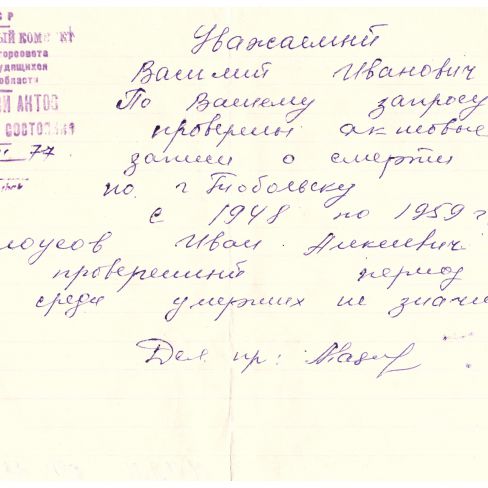 С Р
ЫЙ КОМИТЕТ
горсовета
удящихся
области
ИЙ АКТОВ
СОСТОЯНИЯ
77
Уважаемый
Василий Иванович
По Вашему запросу
проверены актовые
записи о смерти
по г Тобольску
с 1948 по 1959 г
лоусов Иван Алексеевич
проверенный период
среди умерших не значи
Дел. пр: